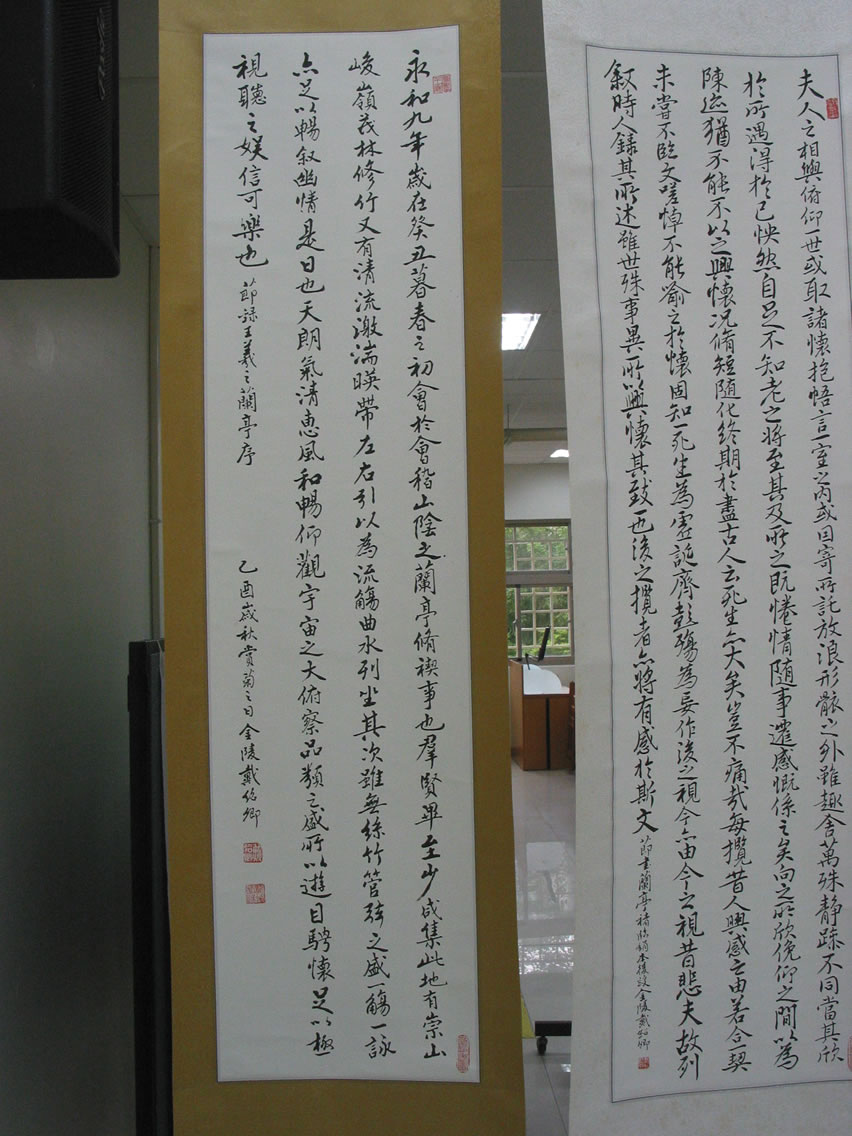 永和九年歲在癸丑暮春之初會於會稽山陰之蘭亭脩禊事也羣賢畢至少咸集此地有崇山
峻嶺茂林修竹又有清流激湍暎帶左右引以為流觴曲水列坐其次雖無絲竹管弦之盛一觴一詠
亦足以暢叙幽情是日也天朗氣清惠風和暢仰觀宇宙之大俯察品類之盛所以遊目騁懷足以極
視聽之娛信可樂也 節錄王羲之蘭亭序 乙酉歲秋賞菊之日金陵戴紹卿
夫人之相與俯仰一世或取諸懷抱悟言一室之內或因寄所託放浪形骸之外雖趣舍萬殊静躁不同當其欣
於所遇得於己怏然自足不知老之將至其及所之既惓情隨事遷感慨係之矣向之所欣俛仰之間以為
陳迹猶不能不以之興懷況脩短隨化終期於盡古人云死生亦大矣豈不痛哉每攬昔人興感之由若合一契
未嘗不臨文嗟悼不能喻之於懷固知一死生為虛誕齊彭殤為妄作後之視今亦由今之視昔悲夫故列
叙時人錄其所述雖世殊事異所以興懷其致一也後之攬者亦將有感於斯文 節書蘭亭褚臨絹本後段金陵戴紹卿